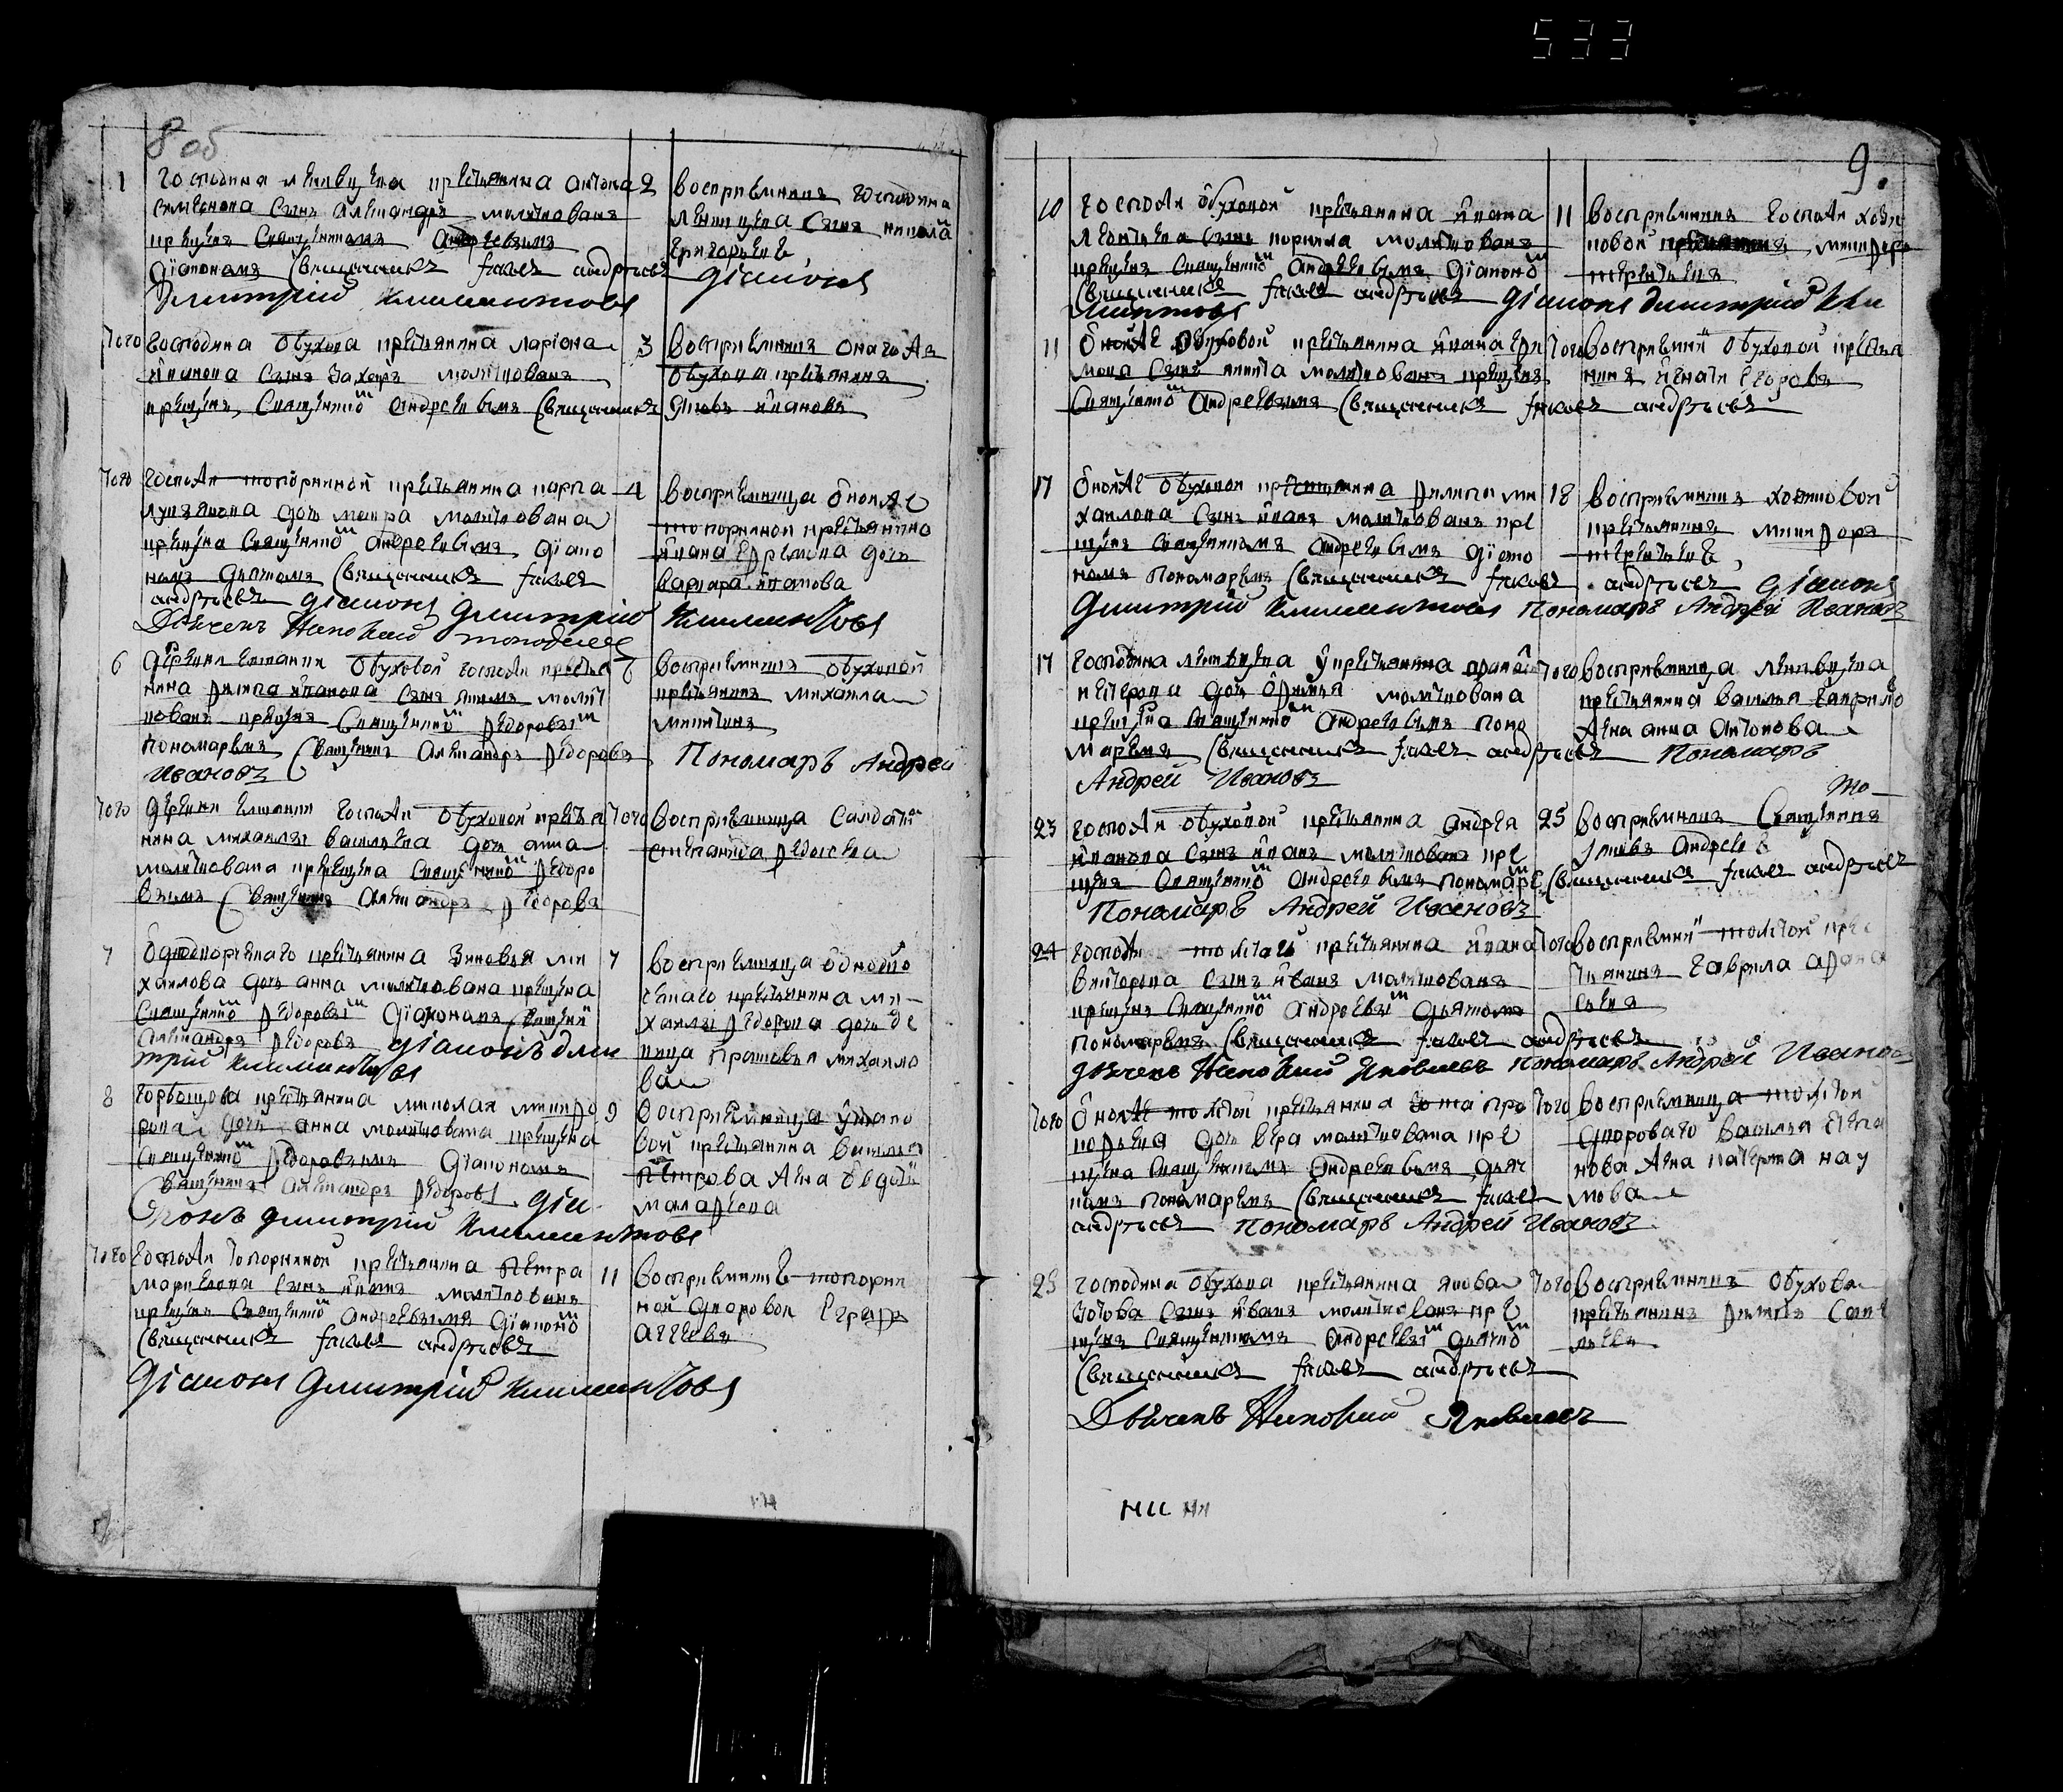 533
8 об
1 Господина Ленивцева крестьянина Антона
Семенова сынъ Александръ молитвованъ
крещенъ священникомъ Андреевымъ
діакономъ Священникъ Іаковъ Андреевъ
Дмитрий Климентовъ
2 восприемникъ Господина
Ленивцева сынъ Никола й
Григорьевъ
діаконъ
того Господина Обухова крестьянина Лариона
Иванова сынъ Захаръ молитвованъ
крещенъ священнико м Андреевымъ Священникъ Іаковъ Андреевъ
3 восприемникъ Онаго жъ
Обухова крестьянинъ
Яковъ Ивановъ
того Госпожи Топорниной крестьянина Карпа
Лукьянова дочь Мавра молитвована
крещена священнико м Андреевымъ діако
номъ дьячкомъ Священникъ Іаковъ
Андреевъ діаконъ Дмитрий Климентовъ
4 восприемница Оной же
Топорниной крестьянина
Ивана Ефремова дочь
Варвара Иванова
6 деревни Обуховой Госпожи крестья
нина Филипа Иванова сынъ Акимъ молит
вованъ крещенъ священнико м Федоровы м
пономаремъ Священникъ Александръ Федоровъ
Ивановъ
6 восприемникъ Обуховой
крестьянинъ Михаила
Никитинъ
Пономарь Андрей
того деревни Госпожи Обуховой крестья
нина Михаилы Васильева дочь Анна
молитвована крещена священнико м Федоро
вымъ Священникъ Александръ Федоровъ
того восприемница Салдатка
Степанида Федосеева
7 Однодворческаго крестьянина Зиновья Ми
хайлова дочь Анна молитвована крещена
священнико м Федоровы м діакономъ Священни
Александръ Федоровъ діаконъ Дми
трий Климентовъ
7 восприемница Однодво
рческаго крестьянина Ми
хаилы Федорова дочь де
вица Прасковья Михайло
ва
8 Горбунцова крестьянина Миколая Никифо
рова дочь Анна молитвована крещена
священнико м Федоровымъ діакономъ
Священникъ Александръ Федоровъ діа
конъ Дмитрий Климентовъ
9 восприемница
вой крестьянина Василья
Петрова жена Овдотья
Малафеева
того Госпожи Топорниной крестьянина Петра
Маркелова сынъ Иванъ молитвованъ
крещенъ священнико м Андреевымъ діаконо м
Священникъ Іаковъ Андреевъ
діаконъ Дмитрий Климентовъ
11 восприемникъ Топорни
ной дворовой Евграфъ
Агеевъ
9.
10 Госпожи Обуховой крестьянина Ивана
Леонтьева сынъ Корнила молитвованъ
крещенъ священнико м Андреевымъ діаконо м
Священникъ Іаковъ Андреевъ діаконъ Дмитрий Кли
ментовъ
11 восприемникъ Госпожи
новой крестьянинъ Никифоръ
Терентьевъ
11 Оной же Обуховой крестьянина Ивана Ефи
мова сынъ Никита молитвованъ крещенъ
священнико м Андреевымъ Священникъ Іаковъ Андреевъ
того восприемни Обуховой крестья
нинъ Игнати Егоровъ
17 Оной же Обуховой крестьянина Филипа Ми
хайлова сынъ Иванъ молитвованъ кре
щенъ священникомъ Андреевымъ діако
номъ пономаремъ Священникъ Іаковъ Андреевъ діаконъ
Дмитрий Климентовъ Пономарь Андрей Ивановъ
18 восприемникъ
крестьянинъ Никифоръ
Терентьевъ
17 Господина Ленивцева крестьянина
Нестерова дочь Офимья молитвована
крещена священнико м Андреевымъ поно
маремъ Священникъ Іаковъ Андреевъ Пономарь
Андрей Ивановъ
того восприемница Ленивцева
крестьянина Василья Гаврилов
жена Анна Антонова
23 Госпожи Обуховой крестьянина Андрея
Иванова сынъ Иванъ молитвованъ кре
щенъ священнико м Андреевымъ пономаре м
Пономарь Андрей Ивановъ
25 восприемникъ Священникъ
Іаковъ Андреевъ
Священникъ Іаковъ Андреевъ
24 Госпожи Толстой крестьянина Ивана
Викторова сынъ Иванъ молитвованъ
крещенъ священнико м Андреевы м дьячкомъ
пономаремъ Священникъ Іаковъ Андреевъ
Дьячекъ Яковлевъ Пономарь Андрей Ивановъ
того восприемни Толстой кре
стьянинъ Гаврила Афана
сьевъ
того Оной же Толстой крестьянина Про
кофьева дочь Вера молитвована кре
щена священникомъ Андреевымъ дьяч
комъ пономаремъ Священникъ Іаковъ
Андреевъ Пономарь Андрей Ивановъ
того восприемница Толстой
двороваго Василья Степа
нова жена Катерина Нау
мова
25 Господина Обухова крестьянина Якова
Зотова сынъ Иванъ молитвованъ кре
щенъ священникомъ Андреевы м дьячко м
Священникъ Іаковъ Андреевъ
Дьячекъ Яковлевъ
того восприемникъ Обухова
крестьянинъ Филипъ Саве
льевъ